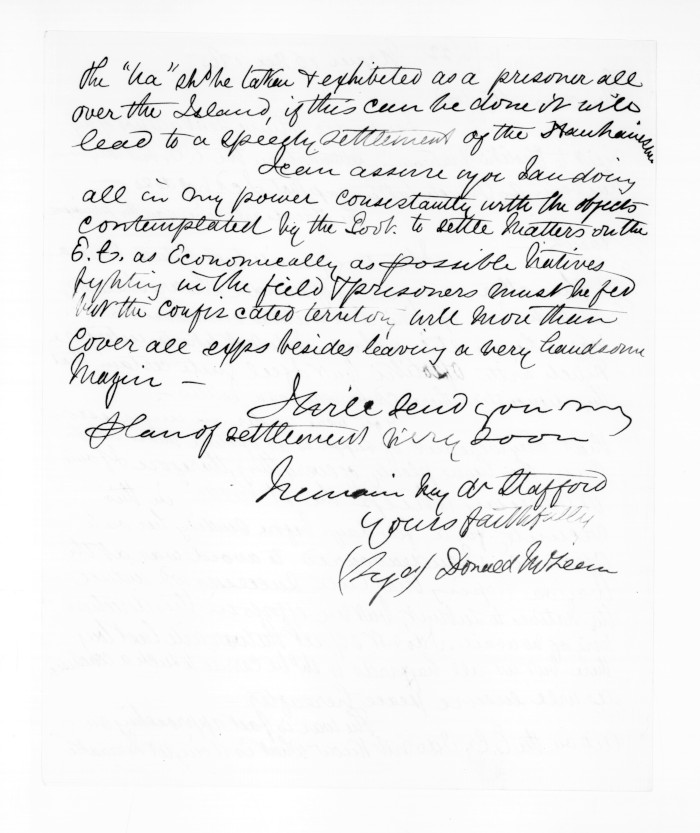 the "Ua" shd be taken & exhibited as a prisoner all
over the Island, if this can be done it will
lead to a speedy settlement of the Hauhauism
I can assure you I am doing
all in my power consistantly with the objects
contemplated by the Govt. to settle Matters on the
E.C. as Economically as possible Natives
fighting in the field & prisoners must be fed
but the confiscated territory will more than
Cover all exps besides leaving a very handsome
Margin —
I will send you my
plan of settlement very soon
I remain My dr Stafford
Yours faithfully
(Sgd) Donald McLean